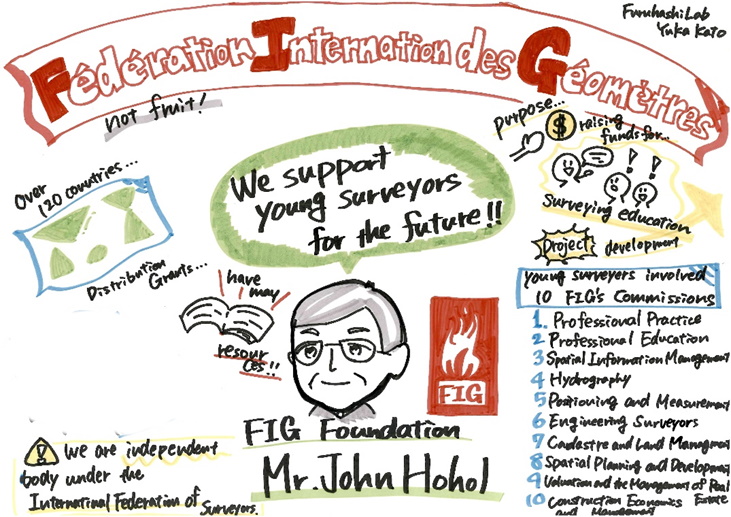 Furuhashi Lab
Yuka Kato
Fédération Internation des Géomètres
not fruit!
purpose...
$
raising
funds for...
surveying education
Project development
Over
120 countries...
Distribution
Grants...
We support
young surveyors
for the future!!
have
may
resour
ces!!
FIG
FIG Foundation
Mr. John Hohol
! We are independent
body under the
International Federation of Surveyors.
young surveyors involved
10 FIG's Commissions
1. Professional Practice
2 Professional Education
3 Spatial Information Management
4 Hydrography
5 Positioning and Measurement
6 Engineering Surveyors
7 Cadastre and Land Managment
8 Spatial Planning and Development
9 Valuation and the Management of Real
Estate
10 Construction Economics
and Management